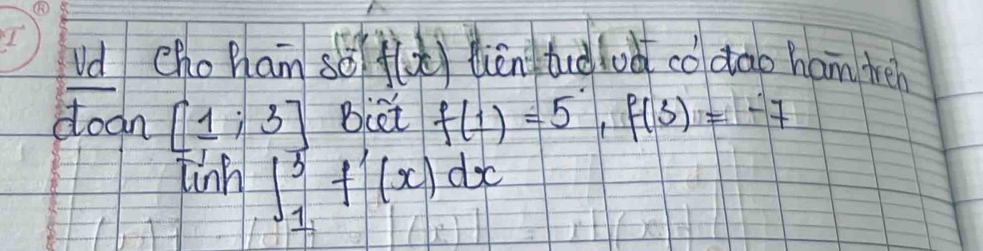 Vd Cho hàm số f(x) liên tục và có đạo hàm trên
đoạn [1; 3] Biết f(1) = 5, f(3) = -7
Tính ∫₁³ f'(x) dx